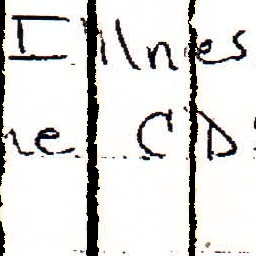 Illnes
he CD